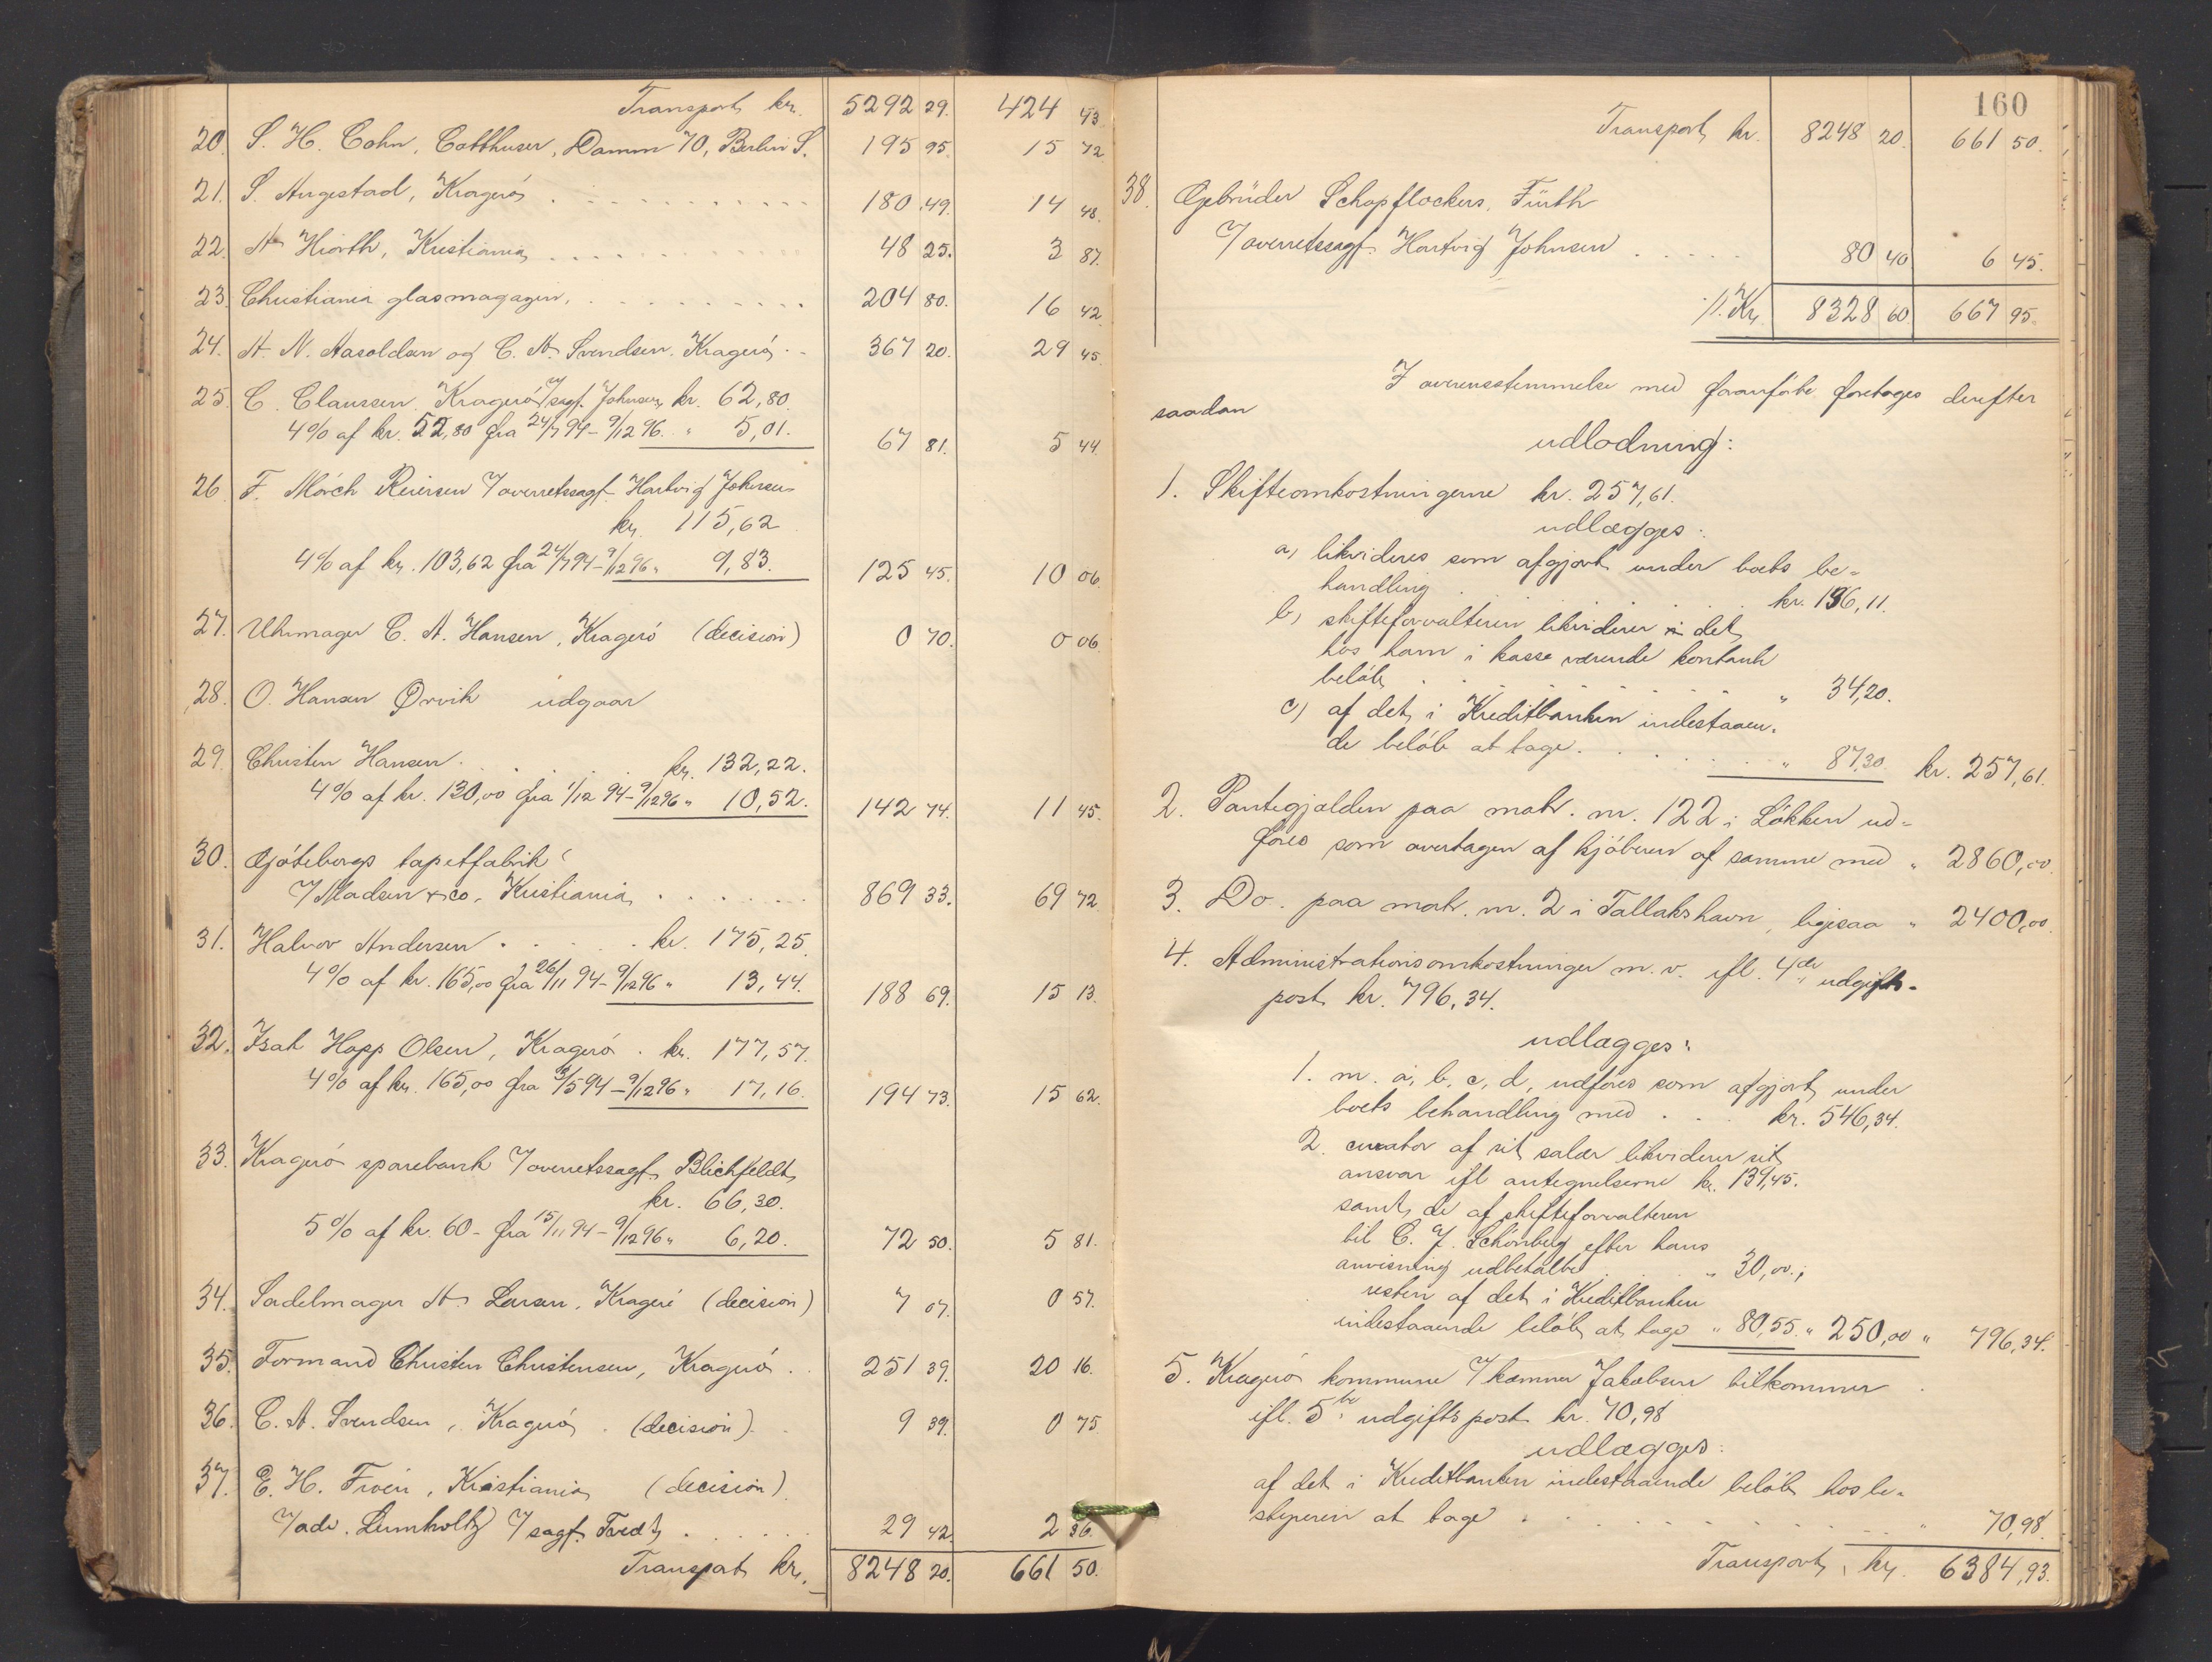 Transport kr. 5292 29. 424 43
20. S. H. Cohn, Cotthuser, Damm 70, Berlin S. 195 95. 15 72
21. S. Angestad, Kragerø 180 49. 14 48.
22. A. Hiorth, Kristiania 48 25. 3 87.
23. Christiania glasmagazin, 204 80. 16 42
24. A. N. Aasoldsen og C. A. Svendsen. Kragerø 367 20. 29 45
25. C. Claussen. Kragerø /sagf. Johnsen, kr. 62,80.
4% af kr. 52,80 fra 24/7 94 - 9/12 96. " 5,01. 67 81. 5 44.
26. F. Mørch Reiersen / overretssagf. Hartvig Johnsen
kr. 115,62
4% af kr. 103,62 fra 24/7 94 - 9/12 96 " 9,83. 125 45. 10 06.
27. Uhrmager C. A. Hansen, Kragerø (decision) 0 70. 0 06.
28. O. Hansen Ørvik udgaar
29. Christen Hansen. kr. 132,22.
4% af kr. 130,00 fra 1/12 94 - 9/12 96 " 10,52. 142 74. 11 45.
30. Gøteborgs tapetfabrik
/ Madsen & co, Kristiania 869 33. 69 72
31. Halvor Andersen kr. 175,25
4% af kr. 165,00 fra 26/11 94 - 9/12 96 " 13,44. 188 69. 15 13.
32. Isak Hopp Olsen, Kragerø. kr. 177,57.
4% af kr. 165,00 fra 3/5 94 - 9/12 96 " 17,16. 194 73. 15 62.
33. Kragerø sparebank / overretssagf. Blichfeldt
kr. 66,30.
5% af kr. 60 - fra 15/11 94 - 9/12 96 " 6,20. 72 50. 5 81.
34. Sadelmager A. Larsen, Kragerø (decision) 7 07. 0 57.
35. Formand Christen Christensen, Kragerø 251 39. 20 16.
36. C. A. Svendsen, Kragerø (decision) 9 39. 0 75
37. E. H. Froen, Kristiania (decision)
/ adv. Lumholtz / sagf. Tvedt 29 42. 2 36.
Transport kr. 8248 20. 661 50.
160
Transport kr. 8248 20. 661 50.
38. Gebrüder Schopflockers, Fürth
/ overretssagf. Hartvig Johnsen 80 40 6 45.
Kr. 8328 60 667 95.
I overensstemmelse med foranførte foretages derefter
saadan
udlodning:
1. Skifteomkostningerne kr. 257,61.
udlægges:
a) likvideres som afgjort under boets be-
handling kr. 136,11.
b) skifteforvalteren likviderer i det
hos ham i kasse værende kontant
beløb " 34,20.
c) af det i Kreditbanken indestaaen-
de beløb at tage. " 87,30 kr. 257,61.
2. Pantegjælden paa matr. nr. 122 i Løkken ud-
føres som overtagen af kjøberen af samme med " 2860,00.
3. Do. paa matr. nr. 2 i Tallakshavn, ligesaa " 2400,00.
4. Administrationsomkostninger m. v. ifl. 4de udgifts-
post kr. 796,34.
udlægges:
1. nr. a, b, c, d, udføres som afgjort under
boets behandling med kr. 546,34.
2. curator af sit salær likviderer sit
ansvar ifl antegnelserne kr. 139,45.
samt de af skifteforvalteren
til C. J. Schønberg efter hans
anvisning udbetalte " 30,00.,
resten af det i Kreditbanken
indestaaende beløb at tage " 80,55. " 250,00 " 796,34.
5. Kragerø kommune / kæmner Jakobsen tilkommer
ifl. 5te udgiftspost kr. 70,98
udlægges:
af det i Kreditbanken indestaaende beløb hos be-
styreren at tage " 70,98.
Transport, kr. 6384,93.